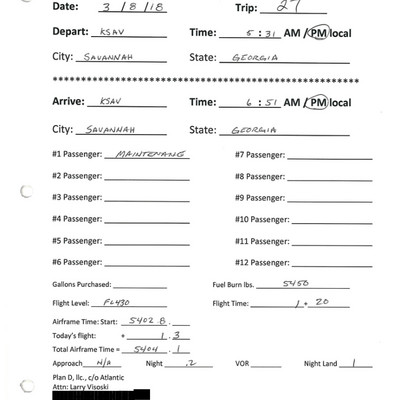 Date: 3 / 8 / 18 Trip: 27
Depart: KSAV Time: 5 : 31 AM / PM local
City: SAVANNAH State: GEORGIA
************************************************************
Arrive: KSAV Time: 6 : 51 AM / PM local
City: SAVANNAH State: GEORGIA
#1 Passenger: MAINTENANC #7 Passenger:
#2 Passenger: #8 Passenger:
#3 Passenger: #9 Passenger:
#4 Passenger: #10 Passenger:
#5 Passenger: #11 Passenger:
#6 Passenger: #12 Passenger:
Gallons Purchased: Fuel Burn lbs. 5450
Flight Level: FL430 Flight Time: 1 + 20
Airframe Time: Start: 5402.8
Today's flight: + 1.3
Total Airframe Time = 5404.1
Approach N/A Night .2 VOR Night Land 1
Plan D, llc., c/o Atlantic
Attn: Larry Visoski